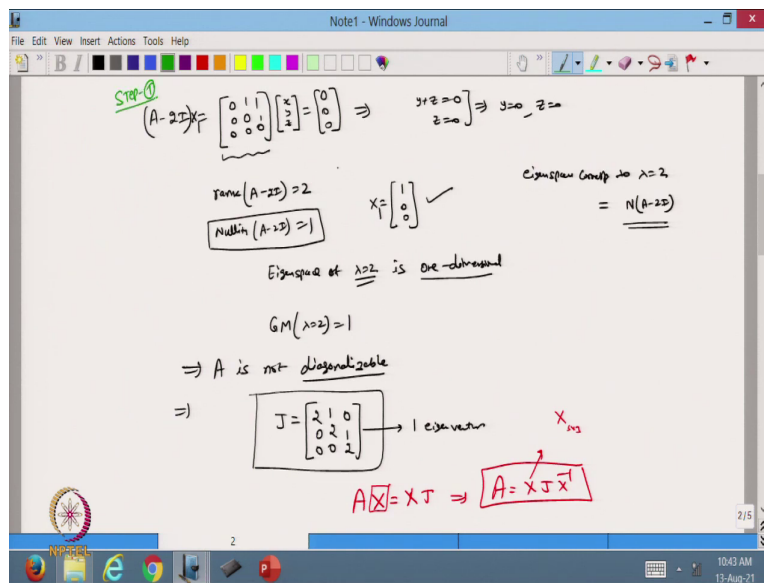 Note1 - Windows Journal
File Edit View Insert Actions Tools Help
STEP-①
(A-2I)X₁ = [0 1 1; 0 0 1; 0 0 0] [x; y; z] = [0; 0; 0] ⇒ y+z=0, z=0 ] ⇒ y=0, z=0
rank(A-2I)=2
Nullity(A-2I)=1
X₁ = [1; 0; 0] ✓
eigenspace corresp to λ=2
= N(A-2I)
Eigenspace of λ=2 is one-dimensional
GM(λ=2)=1
⇒ A is not diagonalizable
⇒ J = [2 1 0; 0 2 1; 0 0 2] → 1 eigenvector
X₃ₓ₃
A X = X J ⇒ A = X J X⁻¹
NPTEL
2
2/5
10:43 AM
13-Aug-21